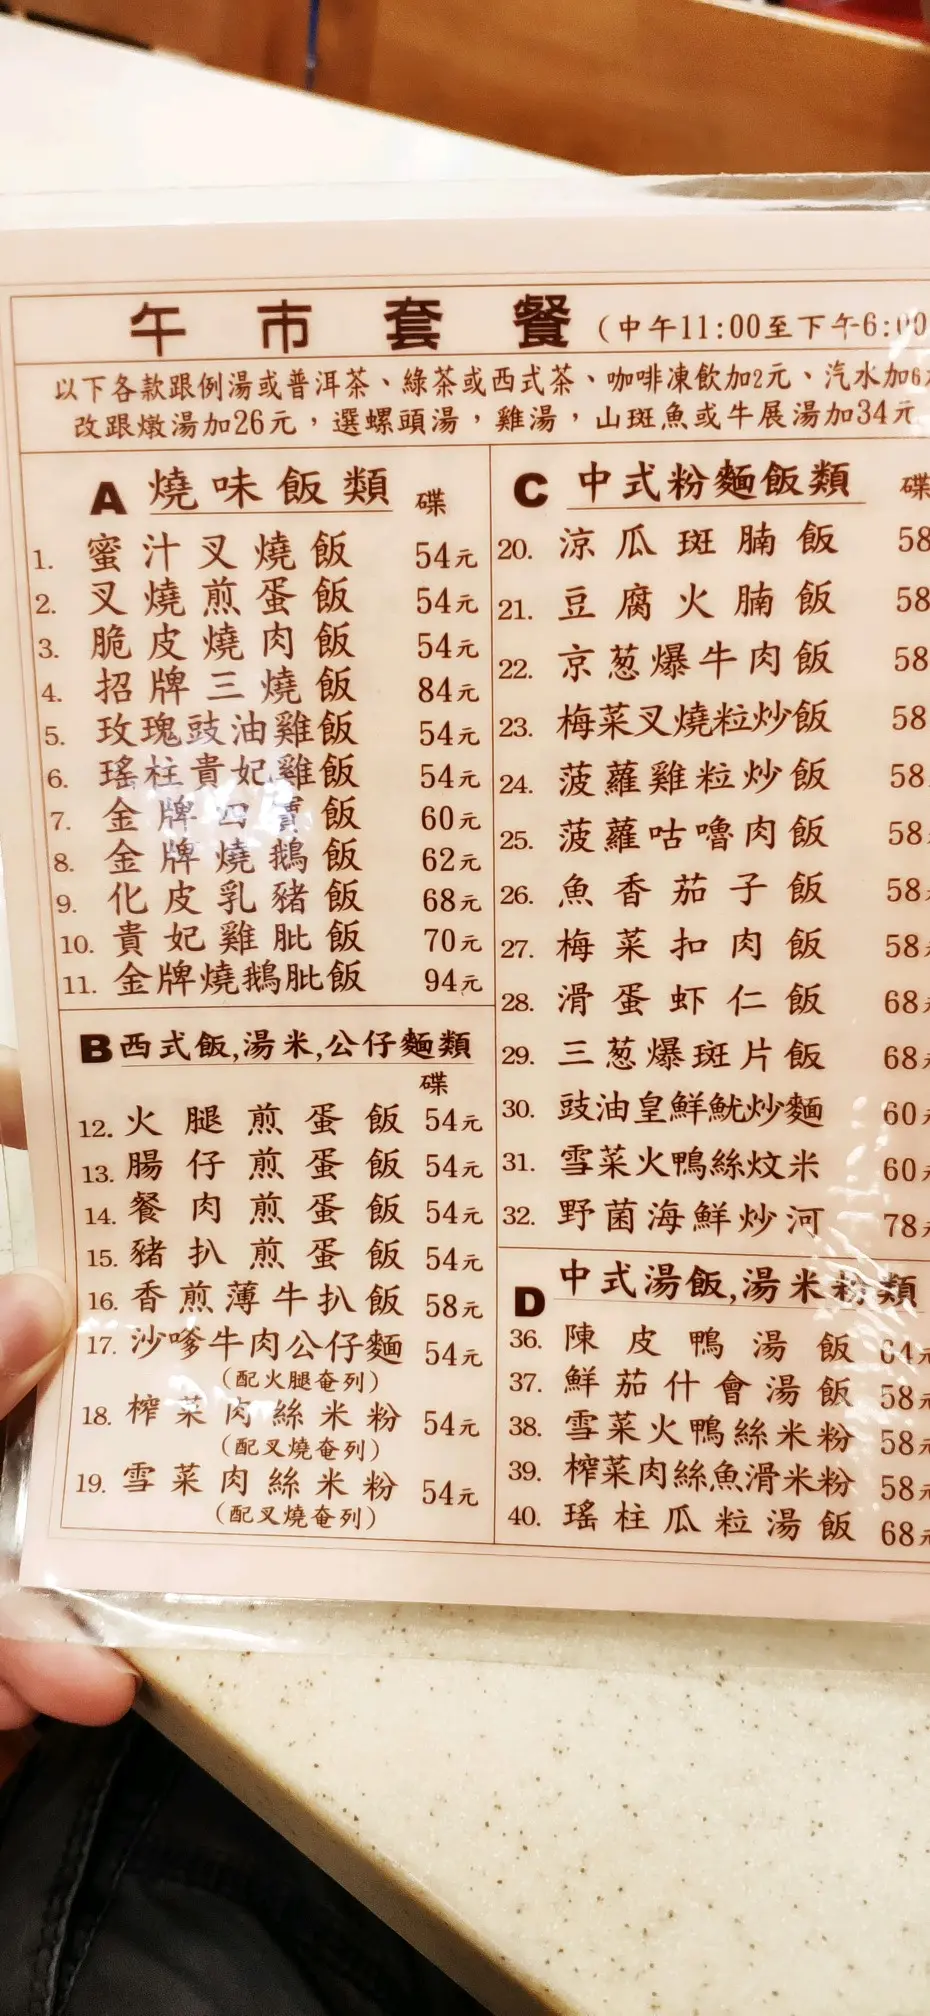 午市套餐 (中午11:00至下午6:00
以下各款跟例湯或普洱茶、綠茶或西式茶、咖啡凍飲加2元、汽水加6元
改跟燉湯加26元，選螺頭湯，雞湯，山斑魚或牛展湯加34元
A 燒味飯類 碟
1. 蜜汁叉燒飯 54元
2. 叉燒煎蛋飯 54元
3. 脆皮燒肉飯 54元
4. 招牌三燒飯 84元
5. 玫瑰豉油雞飯 54元
6. 瑤柱貴妃雞飯 54元
7. 金牌四寶飯 60元
8. 金牌燒鵝飯 62元
9. 化皮乳豬飯 68元
10. 貴妃雞肶飯 70元
11. 金牌燒鵝肶飯 94元
B 西式飯,湯米,公仔麵類
碟
12. 火腿煎蛋飯 54元
13. 腸仔煎蛋飯 54元
14. 餐肉煎蛋飯 54元
15. 豬扒煎蛋飯 54元
16. 香煎薄牛扒飯 58元
17. 沙嗲牛肉公仔麵 54元
(配火腿奄列)
18. 榨菜肉絲米粉 54元
(配叉燒奄列)
19. 雪菜肉絲米粉 54元
(配叉燒奄列)
C 中式粉麵飯類 碟
20. 涼瓜斑腩飯 58
21. 豆腐火腩飯 58
22. 京葱爆牛肉飯 58
23. 梅菜叉燒粒炒飯 58
24. 菠蘿雞粒炒飯 58
25. 菠蘿咕嚕肉飯 58
26. 魚香茄子飯 58
27. 梅菜扣肉飯 58
28. 滑蛋虾仁飯 68
29. 三葱爆斑片飯 68
30. 豉油皇鮮魷炒麵 60
31. 雪菜火鴨絲炆米 60
32. 野菌海鮮炒河 78
D 中式湯飯,湯米粉類
36. 陳皮鴨湯飯 64元
37. 鮮茄什會湯飯 58元
38. 雪菜火鴨絲米粉 58元
39. 榨菜肉絲魚滑米粉 58元
40. 瑤柱瓜粒湯飯 68元